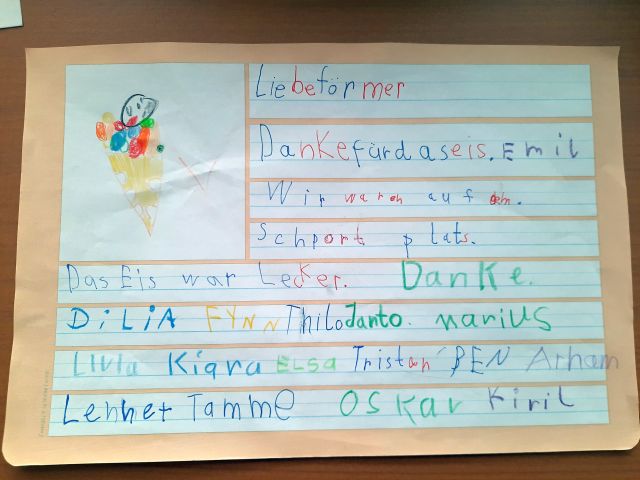 Liebeförmer
Dankefürdaseis. Emil
Wir waren auf dem.
Schport plats.
Das Eis war Lecker. Danke.
DiLiA FYNN Thilo Janto. Marius
Livia Kiara ELSa Tristan BEN Arham
Lennert Tamme OSKar Kiril